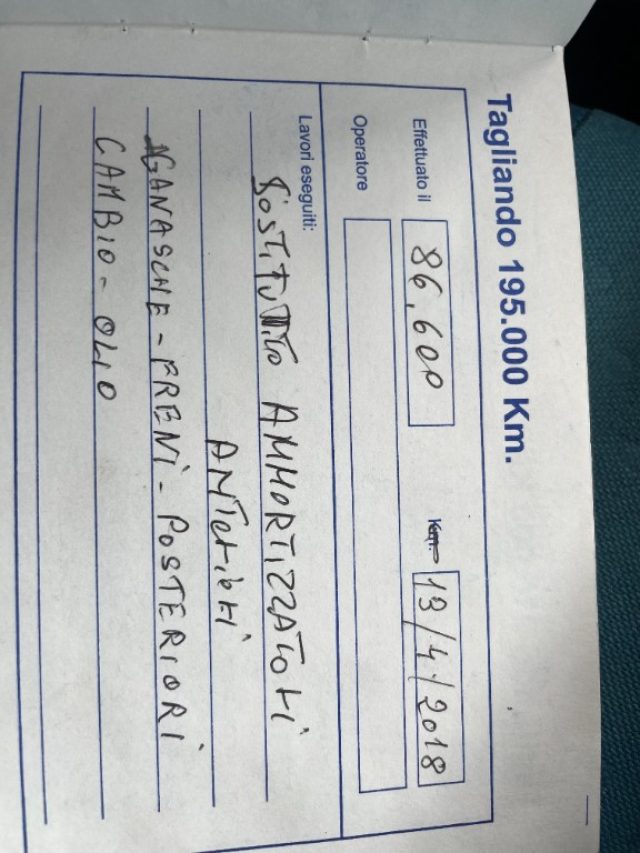 Tagliando 195.000 Km.
Effettuato il 86.600 Km. 13/4/2018
Operatore
Lavori eseguiti:
SOSTITUITO AMMORTIZZATORI
ANTERIORI
GANASCHE - FRENI - POSTERIORI
CAMBIO - OLIO